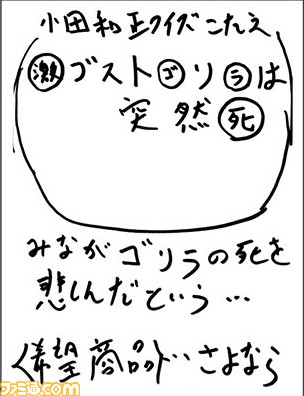 小田和正クイズこたえ
激ゴストゴリラは
突然死
みながゴリラの死を
悲しんだという…
<希望商品>…さよなら
ファミ通.com